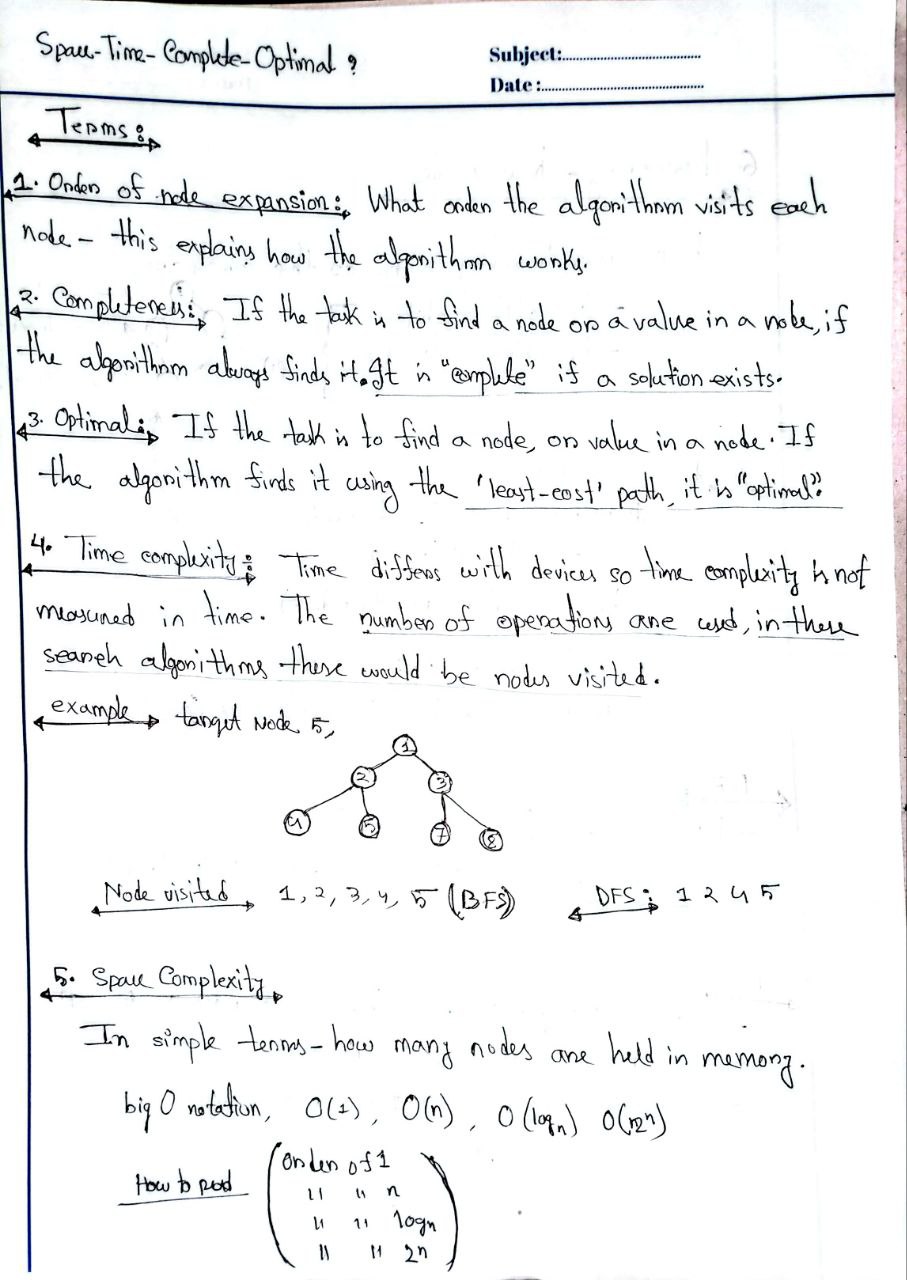 Space-Time-Complete-Optimal ?
Subject:
Date :
Terms:
1. Order of node expansion: What order the algorithm visits each
node - this explains how the algorithm works.
2. Completeness: If the task is to find a node or a value in a node, if
the algorithm always finds it. It is "complete" if a solution exists.
3. Optimal: If the task is to find a node, or value in a node. If
the algorithm finds it using the 'least-cost' path, it is "optimal".
4. Time complexity: Time differs with devices so time complexity is not
measured in time. The number of operations are used, in these
search algorithms these would be nodes visited.
example target Node 5,
1
2 3
4 5 7 8
Node visited 1, 2, 3, 4, 5 (BFS) DFS: 1 2 4 5
5. Space Complexity
In simple terms - how many nodes are held in memory.
big O notation, O(1), O(n), O(log n)
How to read
(order of 1
" " n
" " log n
" " 2n)